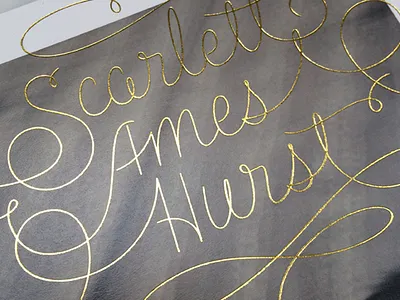 Scarlett
Ames
Hurst